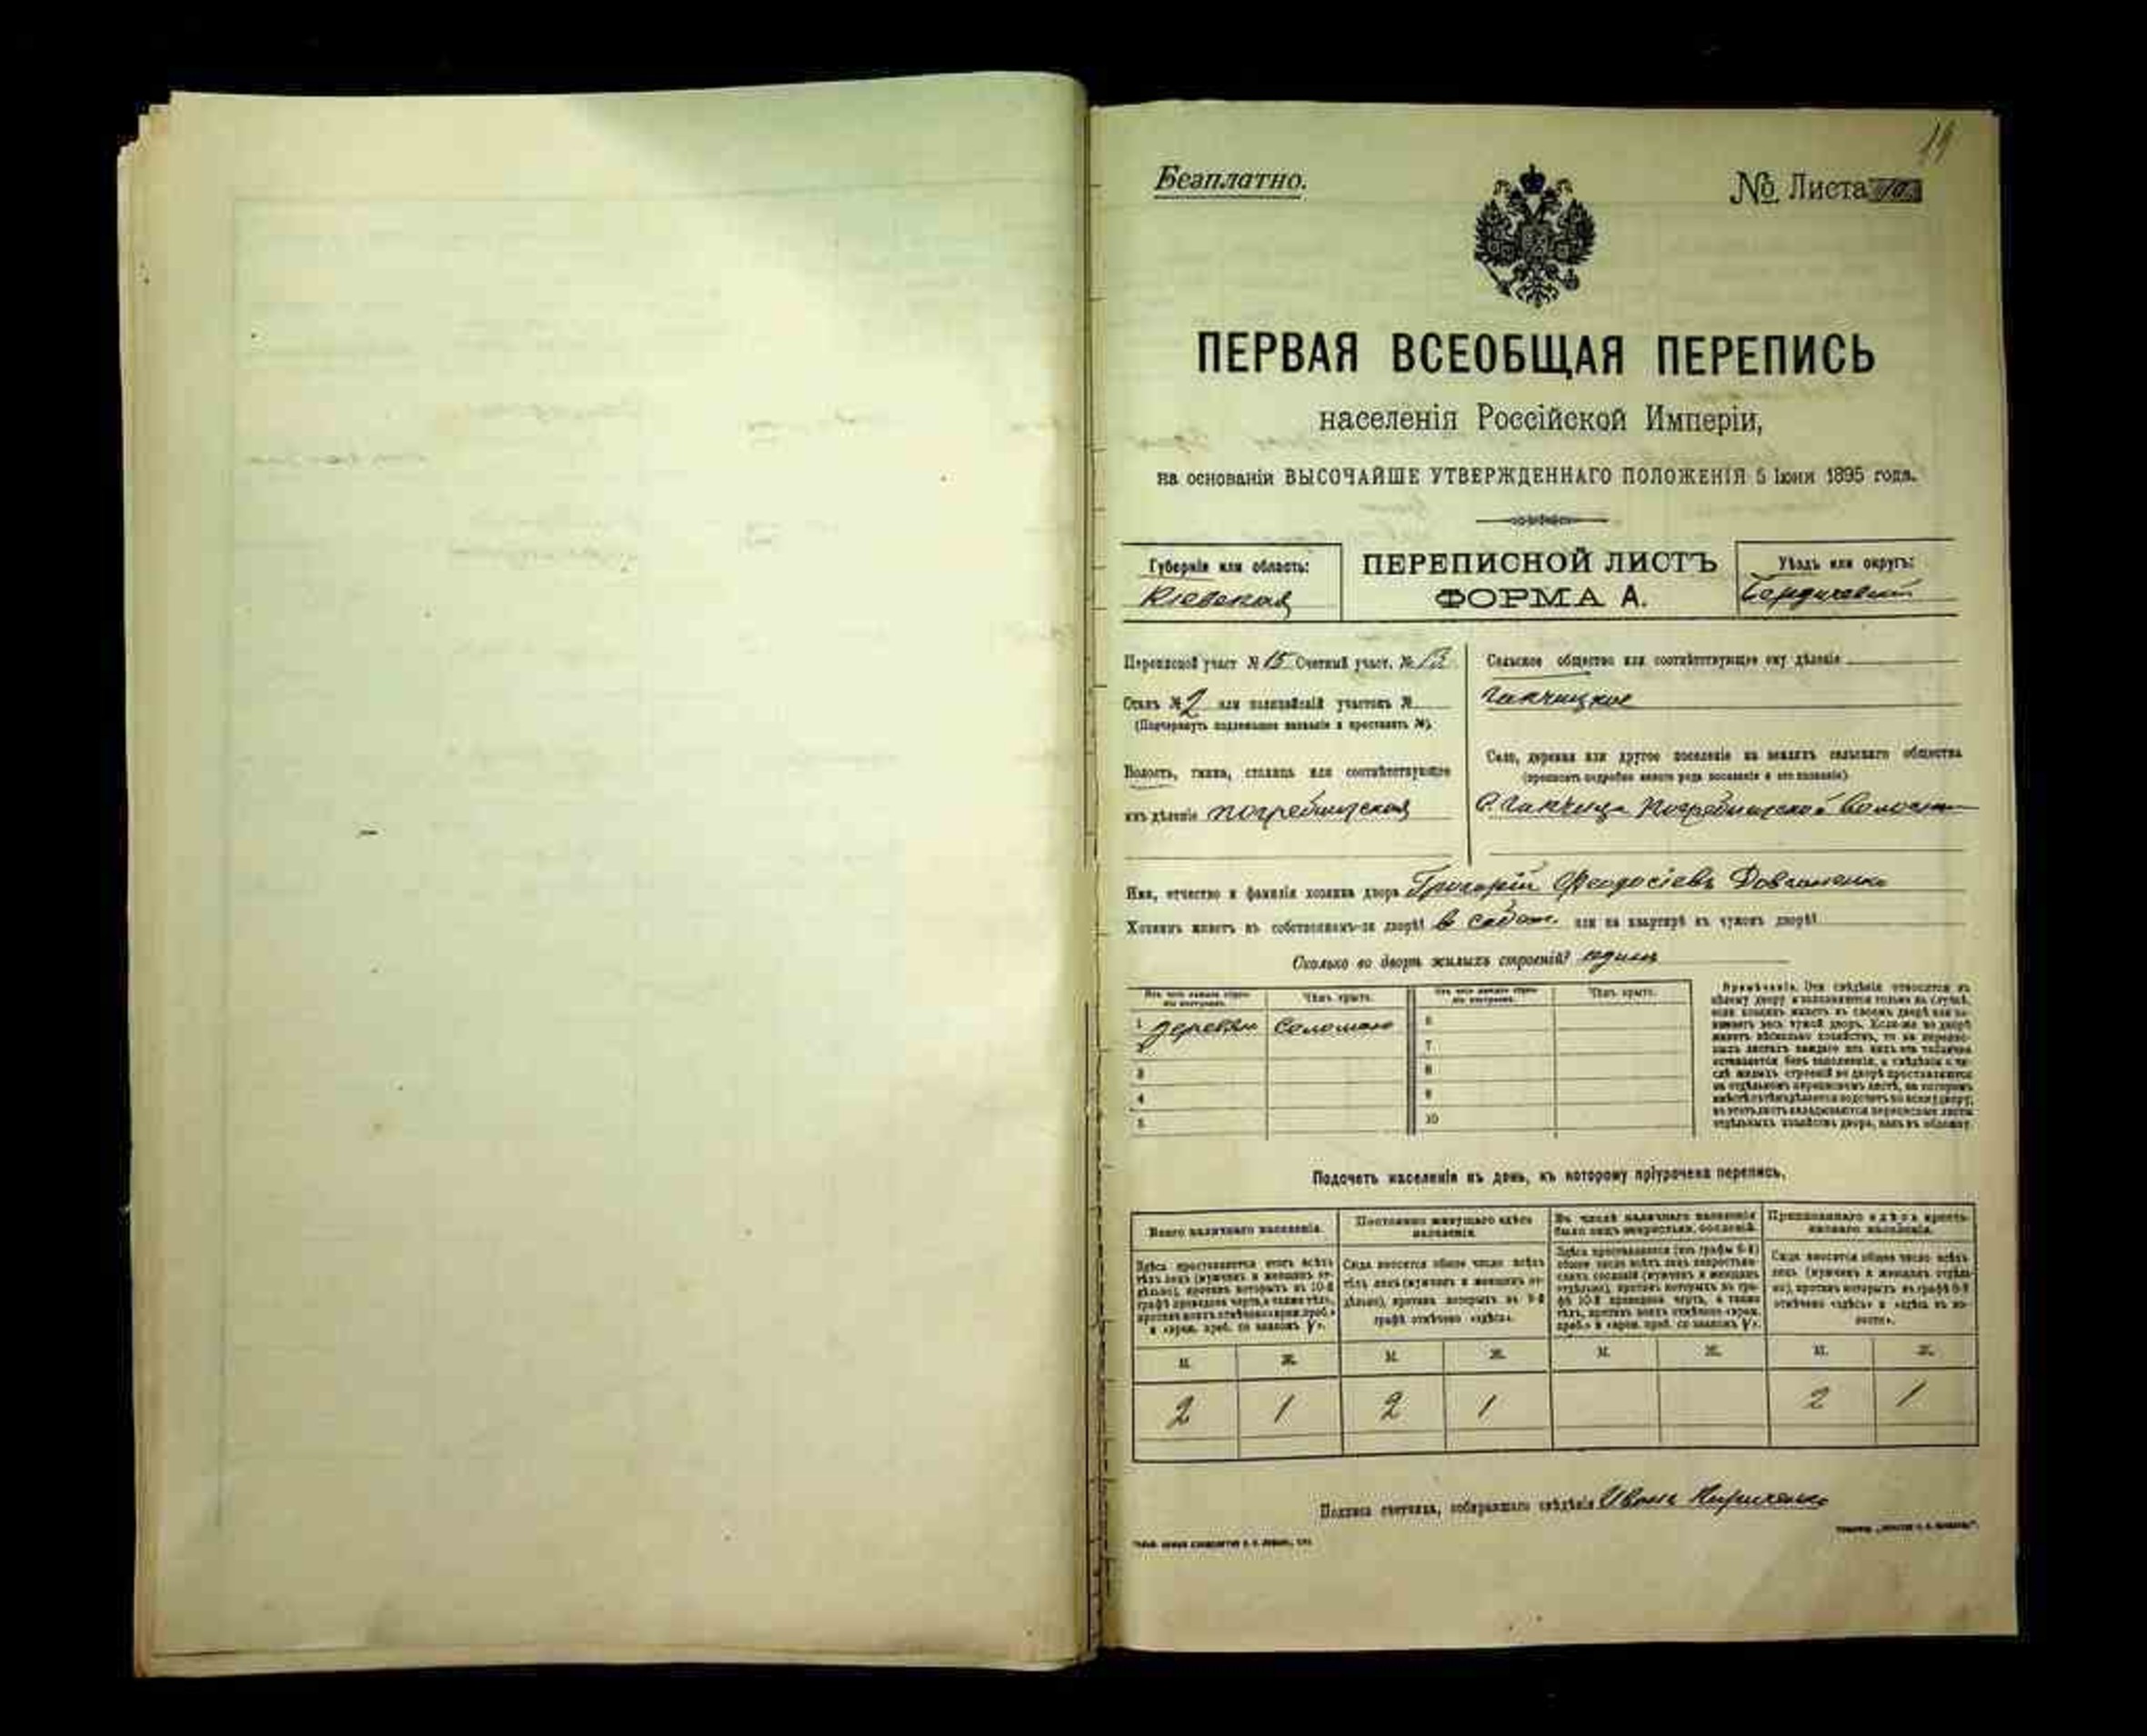 19
Безплатно.
№ Листа 10
ПЕРВАЯ ВСЕОБЩАЯ ПЕРЕПИСЬ
населенія Россійской Имперіи,
на основаніи ВЫСОЧАЙШЕ УТВЕРЖДЕННАГО ПОЛОЖЕНІЯ 5 Іюня 1895 года.
Губернія или область:
Кіевская
ПЕРЕПИСНОЙ ЛИСТЪ
ФОРМА А.
Уѣздъ или округъ:
Бердичевскій
Переписной участ № 15 Счетный участ. № 13
Станъ № 2 или полицейскій участокъ №
(Подчеркнуть подлежащее названіе и проставить №).
Волость, гмина, станица или соотвѣтствующее
имъ дѣленіе Погребищская
Сельское общество или соотвѣтствующее ему дѣленіе
Село, деревня или другое поселеніе на земляхъ сельскаго общества
(прописать подробно какого рода поселеніе и его названіе)
Погребищской Волости
Имя, отчество и фамилія хозяина двора Григорій Феодосіевъ Довганенко
Хозяинъ живетъ въ собственномъ-ли дворѣ? в собст. или на квартирѣ въ чужомъ дворѣ?
Сколько во дворѣ жилыхъ строеній? один
Изъ чего каждое строеніе построено.
Чѣмъ крыто.
Изъ чего каждое строеніе построено.
Чѣмъ крыто.
1 деревян Соломою 6
2 7
3 8
4 9
5 10
Примѣчаніе. Эти свѣдѣнія относятся къ
цѣлому двору и заполняются только въ случаѣ,
если хозяинъ живетъ въ своемъ дворѣ или за-
нимаетъ весь чужой дворъ. Если-же во дворѣ
живетъ нѣсколько хозяйствъ, то на перепис-
ныхъ листахъ каждаго изъ нихъ эта табличка
оставляется безъ заполненія, а свѣдѣнія о чи-
слѣ жилыхъ строеній во дворѣ проставляются
на отдѣльномъ переписномъ листѣ, на которомъ
въ этотъ листъ вкладываются переписные листы
отдѣльныхъ хозяйствъ двора, какъ въ обложку.
Подсчетъ населенія въ день, къ которому пріурочена перепись.
Всего наличнаго населенія.
Постоянно живущаго здѣсь
населенія.
Въ числѣ наличнаго населенія
было лицъ некрестьян. сословій.
Приписаннаго здѣсь кресть-
янскаго населенія.
Здѣсь проставляется итогъ всѣхъ
тѣхъ лицъ (мужчинъ и женщинъ от-
дѣльно), противъ которыхъ въ 10-й
графѣ проведена черта, а также тѣхъ,
противъ коихъ отмѣчено «врем. проб.»
и «врем. преб. со знакомъ V».
Сюда вносится общее число всѣхъ
тѣхъ лицъ (мужчинъ и женщинъ от-
дѣльно), противъ которыхъ въ 9-й
графѣ отмѣчено «здѣсь».
Здѣсь проставляется (изъ графы 6-й)
общее число всѣхъ лицъ некрестьян-
скихъ сословій (мужчинъ и женщинъ
отдѣльно), противъ которыхъ въ гра-
фѣ 10-й проведена черта, а также
тѣхъ, противъ коихъ отмѣчено «врем.
преб.» и «врем. преб. со знакомъ V».
Сюда вносится общее число всѣхъ
лицъ (мужчинъ и женщинъ отдѣль-
но), противъ которыхъ въ графѣ 8-й
отмѣчено «здѣсь» и «здѣсь въ во-
лости».
М. Ж. М. Ж. М. Ж. М. Ж.
2 1 2 1 2 1
Подпись счетчика, собиравшаго свѣдѣнія Иванъ Кириченко